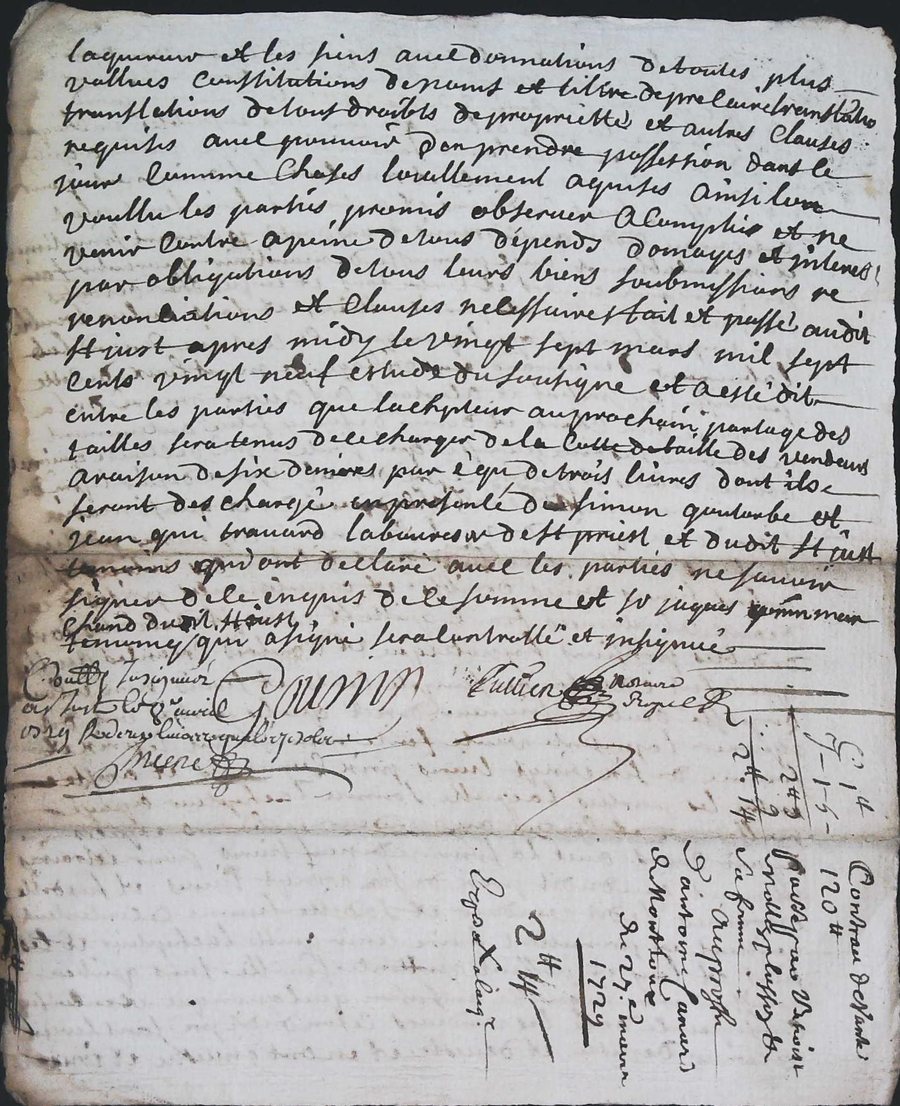 laquereur et les siens avec donnations de toutes plus
vallues constitutions de noms et tiltre de precaire translatio
translations de tout droibts de proprietté et autres clauses
requises avec pouvoir d'en prendre possession dans le
jour comme choses locallement aquises ainsi lon
voullu les parties promis observer acomplir et ne
venir contre a peine de tous dépends domages et interes
par obligations de tous leurs biens soubmissions re
renonciations et clauses nécessaires fait et passé audit
St just apres midy le vingt sept mars mil sept
cents vingt neuf estude du sousigné et a esté dit
entre les parties que lachepteur au prochain partage des
tailles sera tenus de ce charger de la cotte de taille des vendeurs
a raison de six deniers par équ de trois livres dont ils
seront deschargé en présence de simon goutorbe et
jean qui travard laboureur de St priest et dudit St just
temoins qui ont declaré avec les parties ne savoir
signer de ce enquis de ce somme et Sr jaques mar
chand dudit St just
temoing qui a signé sera controllé et insignué
Gounin
notaire
Royal
2# 14
2# 9
1#
1-5-
Contrau de vante
120#
passé par Benoist
sa femme
au proffit
d'antoine Canard
de Montloue
du 27e mars
1729
2# 14